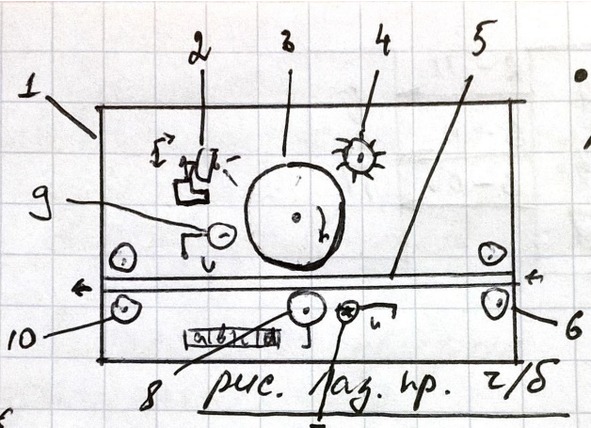 2 3 4 5
1
9
10
6
8
рис. Лаз. пр. ч/б